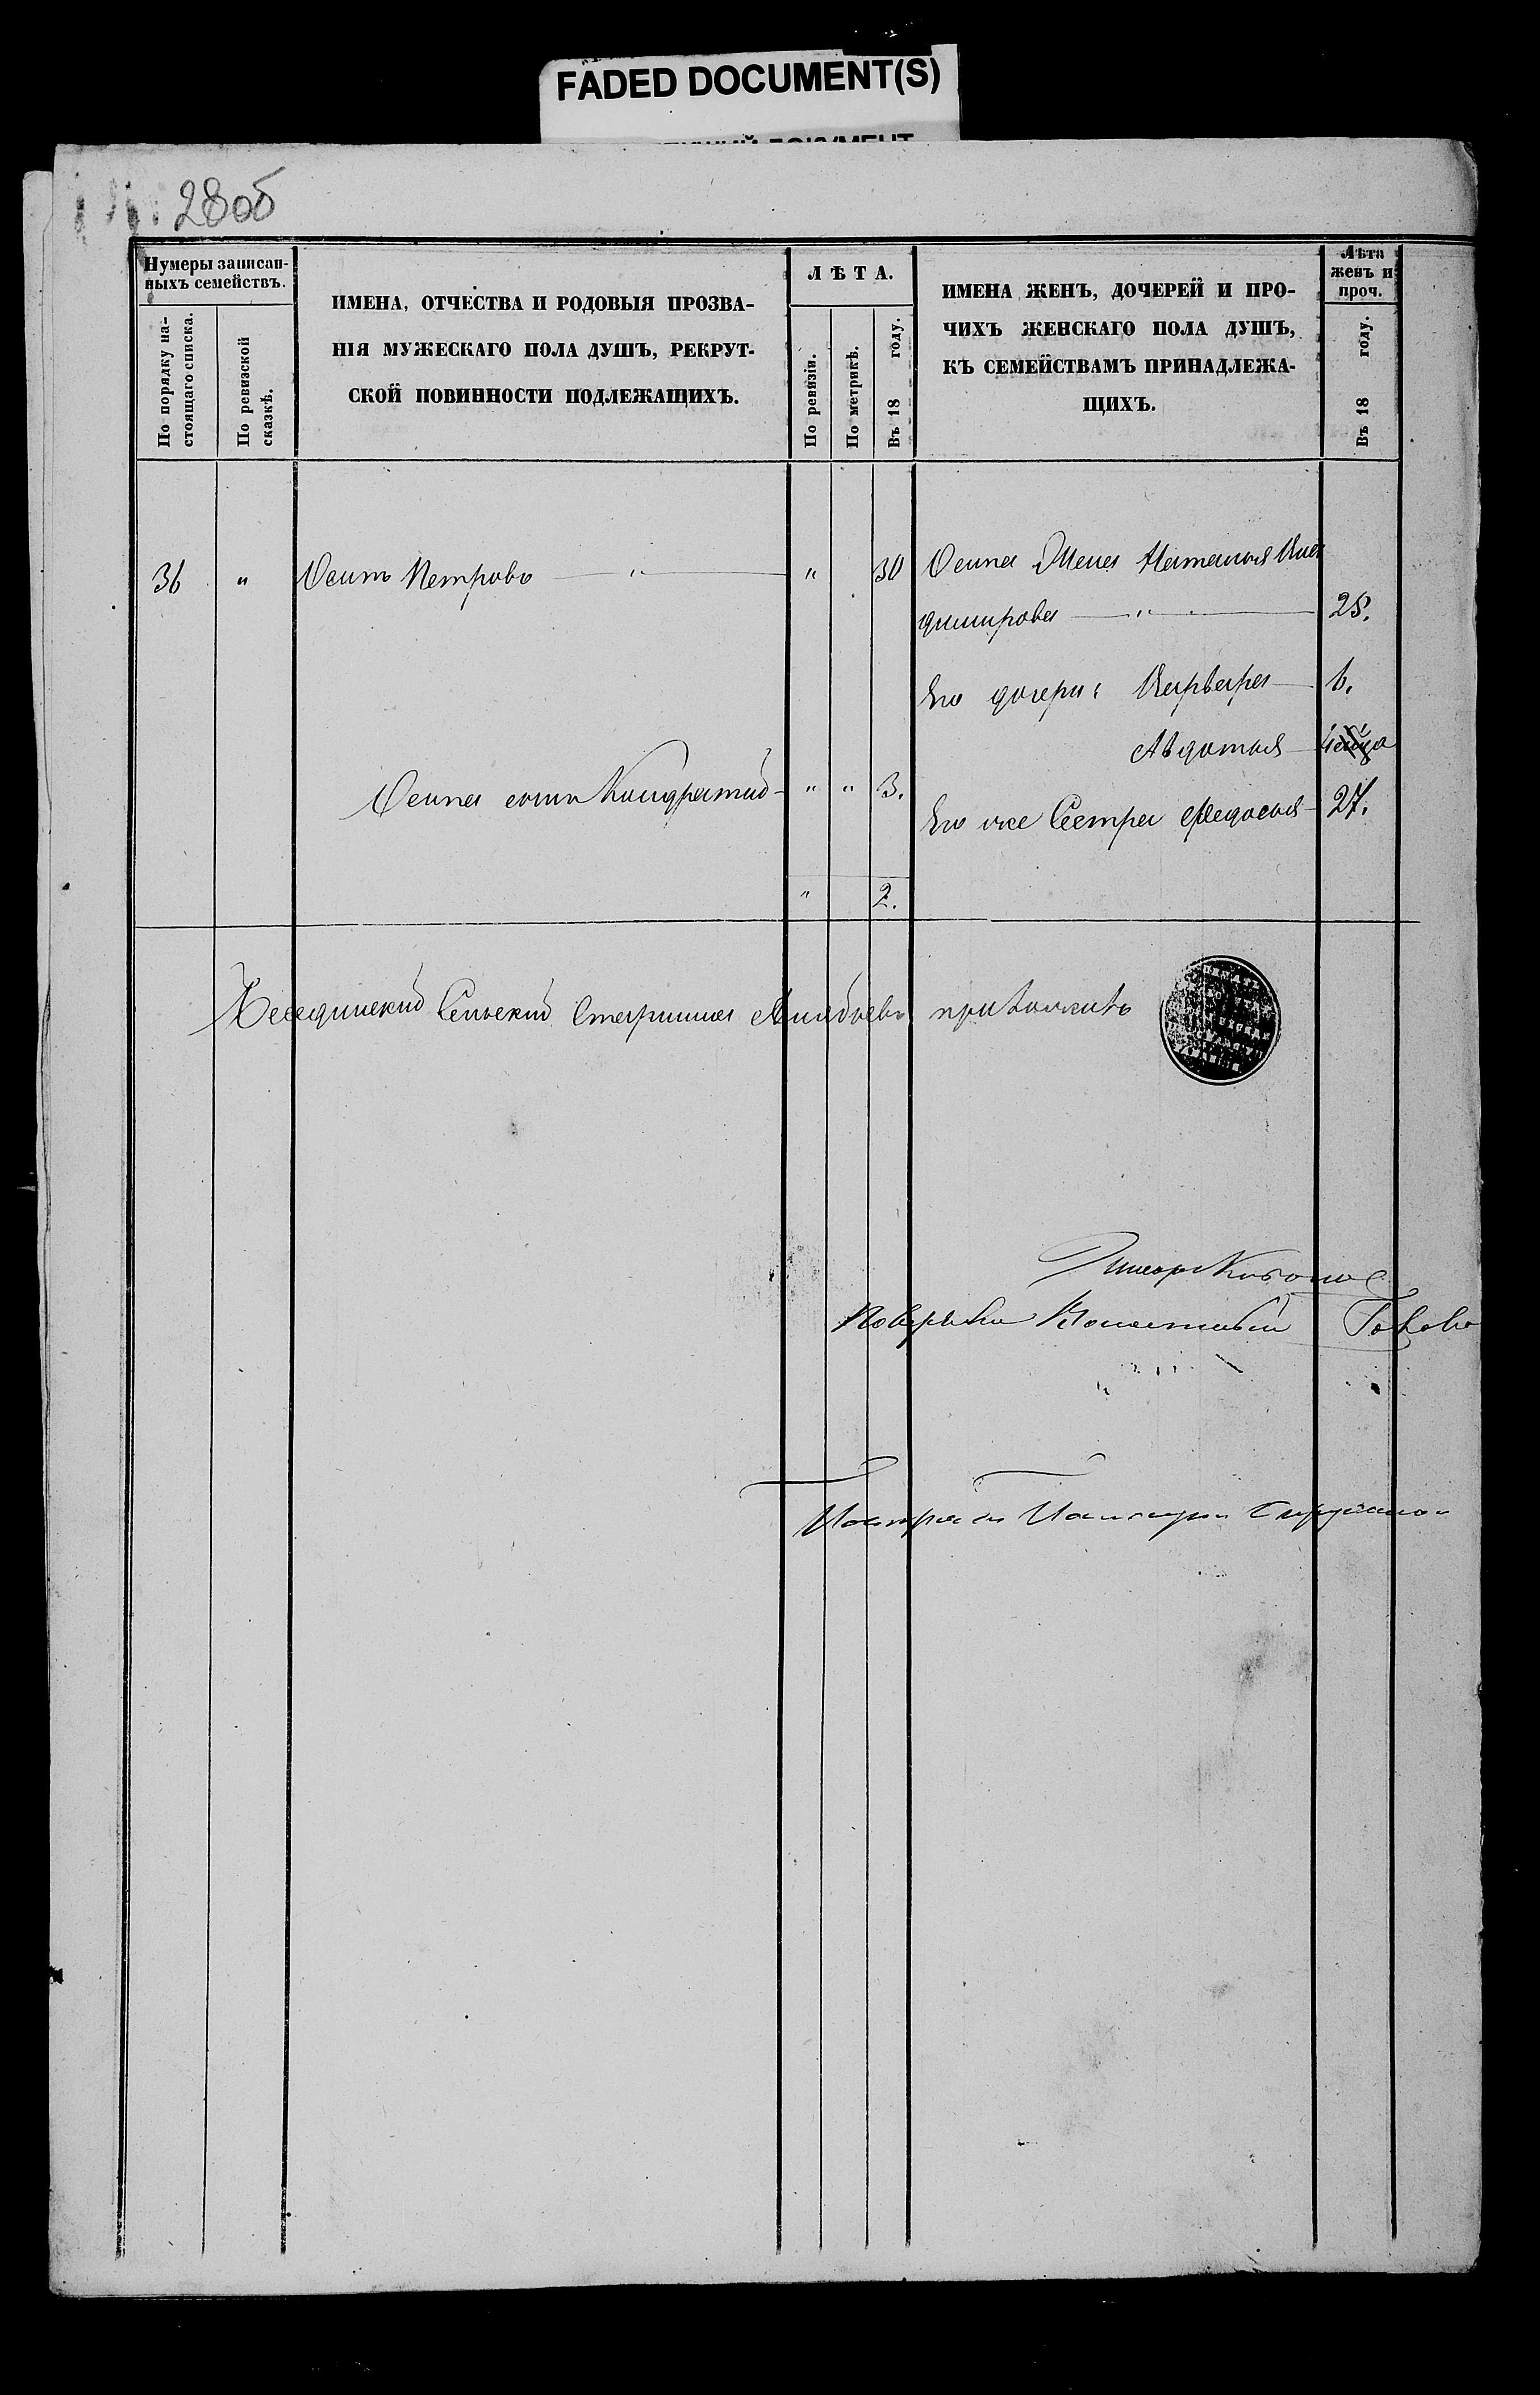 FADED DOCUMENT(S)
280б
Нумеры записан-
ныхъ семействъ.
По порядку на-
стоящаго списка.
По ревизской
сказкѣ.
ИМЕНА, ОТЧЕСТВА И РОДОВЫЯ ПРОЗВА-
НІЯ МУЖЕСКАГО ПОЛА ДУШЪ, РЕКРУТ-
СКОЙ ПОВИННОСТИ ПОДЛЕЖАЩИХЪ.
ЛѢТА.
По ревизіи.
По метрикѣ.
Въ 18 году.
ИМЕНА ЖЕНЪ, ДОЧЕРЕЙ И ПРО-
ЧИХЪ ЖЕНСКАГО ПОЛА ДУШЪ,
КЪ СЕМЕЙСТВАМЪ ПРИНАДЛЕЖА-
ЩИХЪ.
Лѣта
женъ и
проч.
Въ 18 году.
36 " Осипъ Петровъ " " 30
Осипа Жена Наталья Вла
димирова " 25.
Его дочери: Варвара 6.
Авдотья
Осипа сынъ Кондратій " " 3.
Его же Сестра Федосья 27.
" 2.
Сельскій Старшина приложилъ